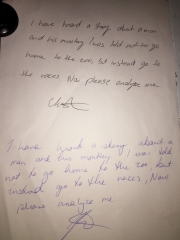 I have heard a story about a man
and his monkey I was told not to go
home to the zoo but instead go to
the races Now please analyze me
I have heard a story about a
man and his monkey I was told
not to go home to the zoo but
instead go to the races, Now
please analyze me